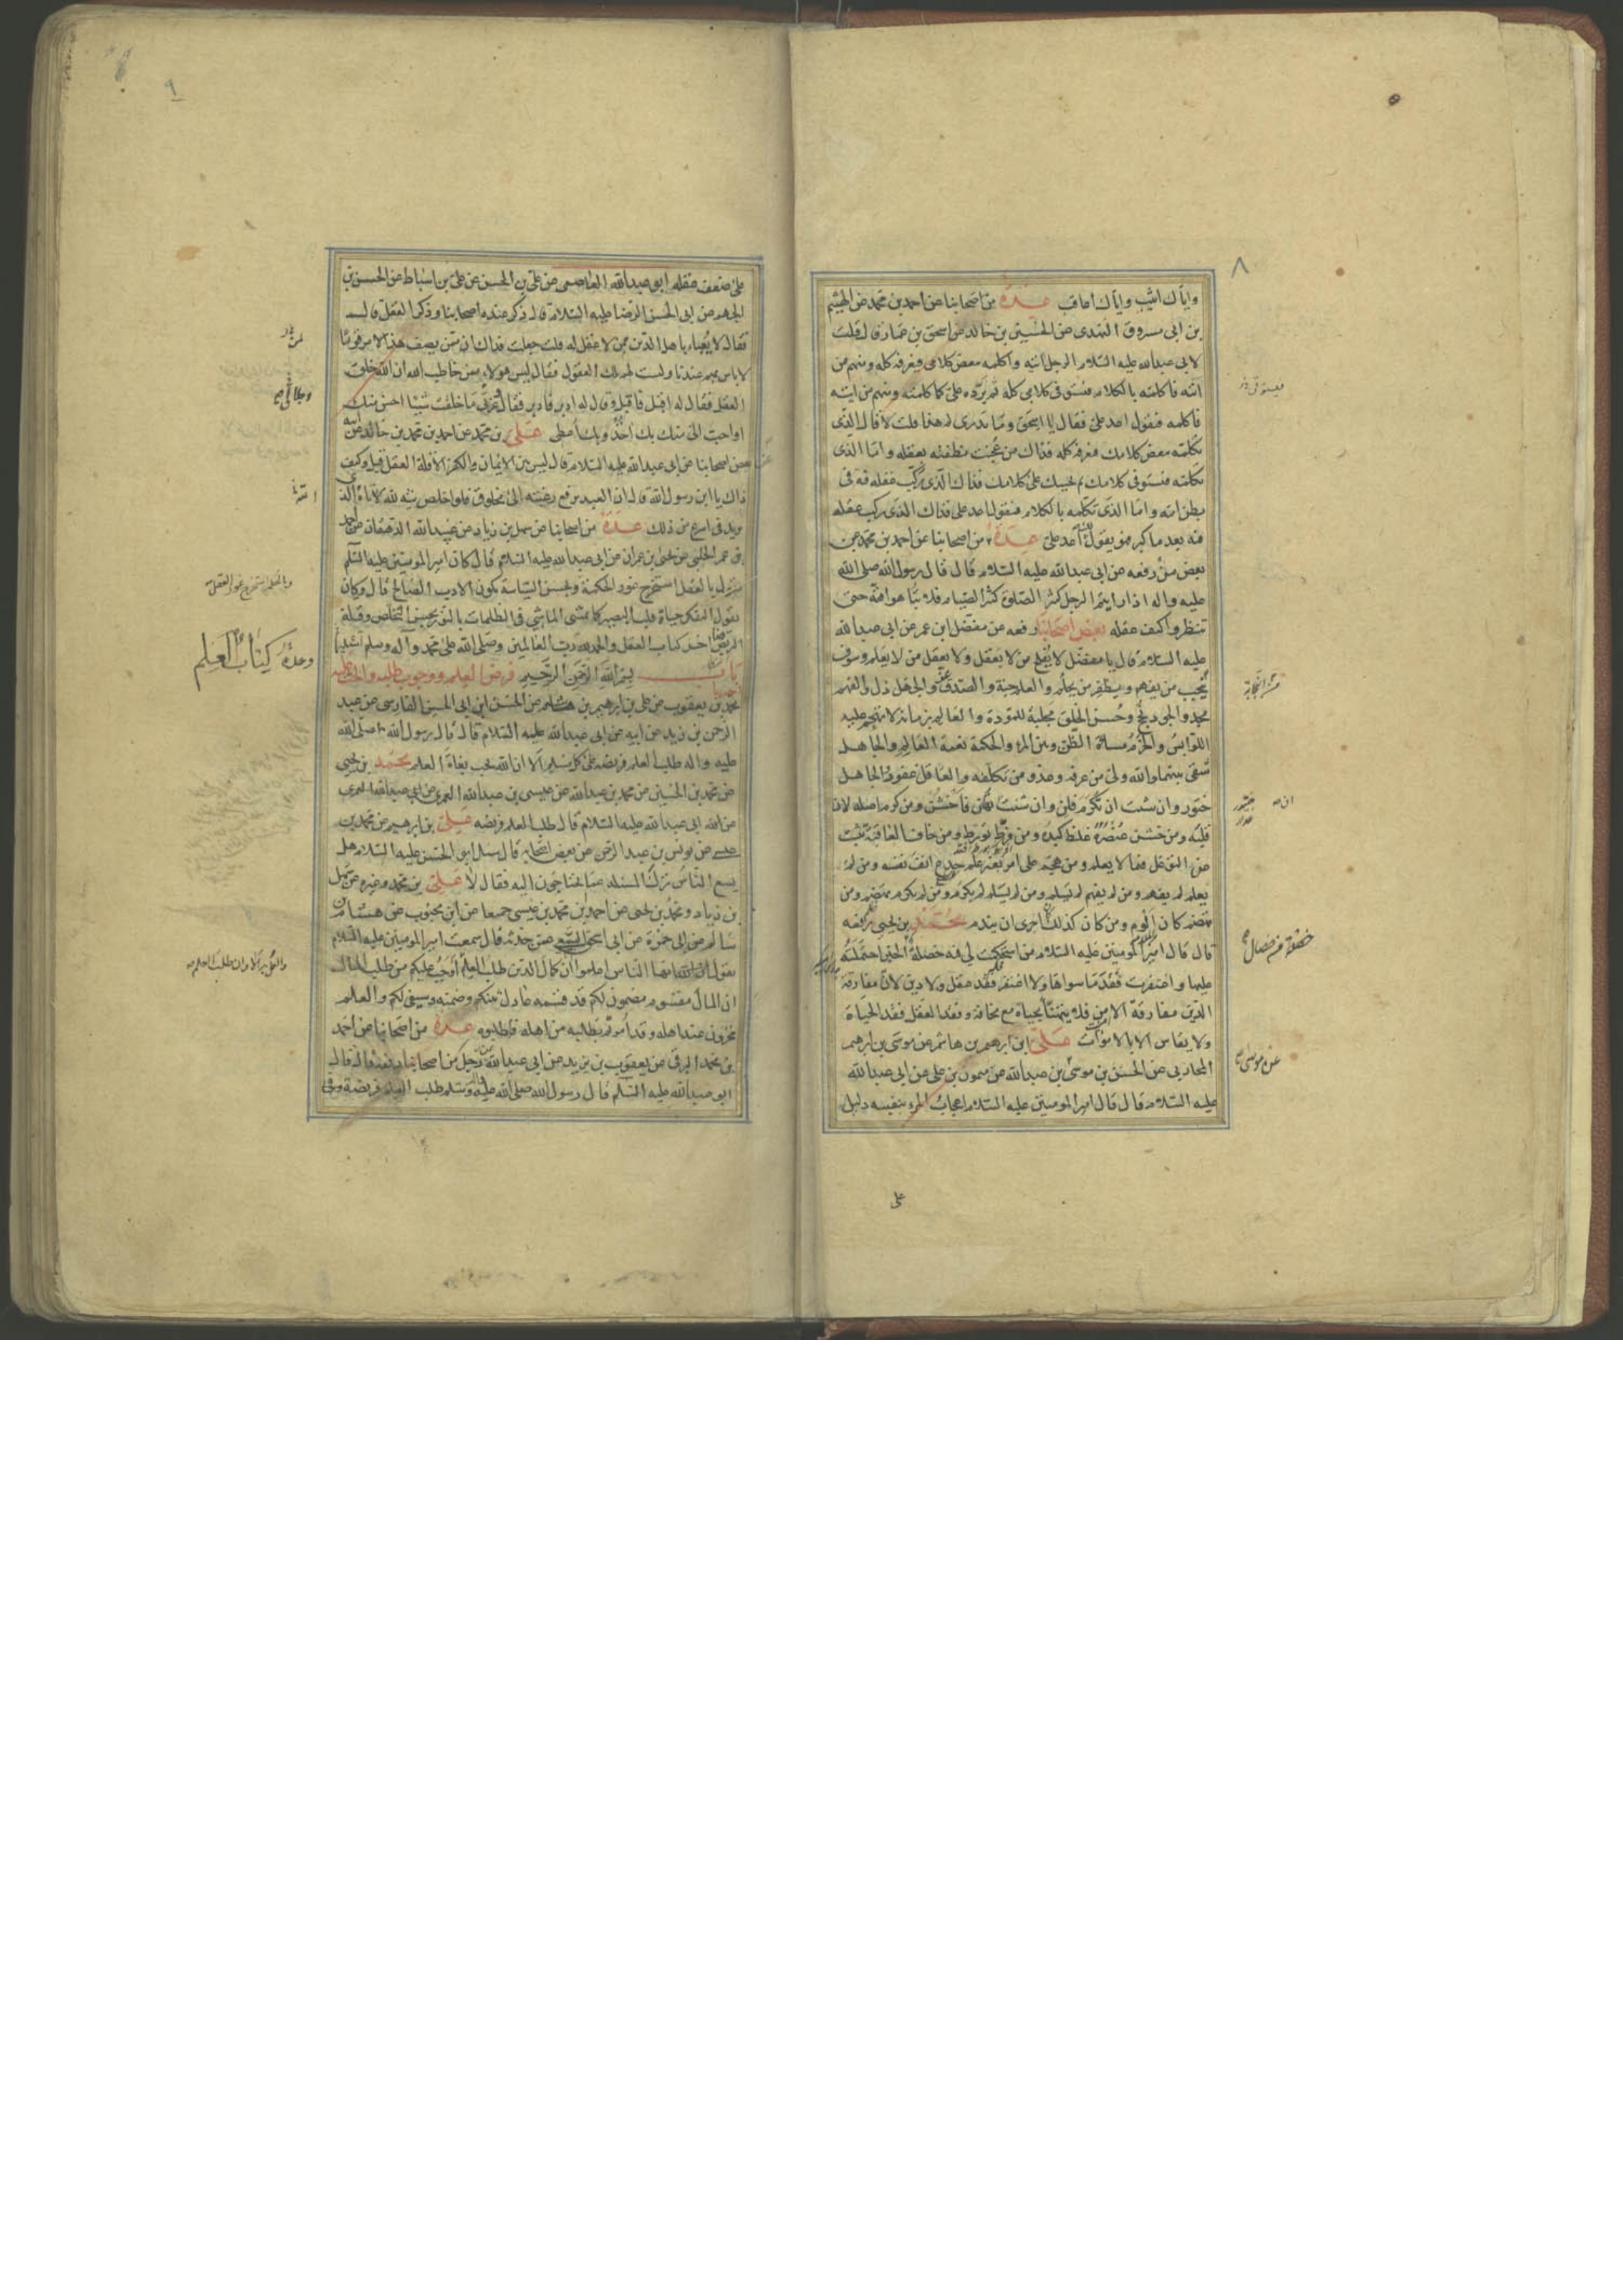 ٨
واياك اثيب واياك اعاقب عدة من اصحابنا عن احمد بن محمد عن الهيثم
بن ابى مسروق النهدى عن الحسين بن خالد عن اسحق بن عمار قال قلت
لابى عبدالله عليه السلام الرجل اتيه واكلمه ببعض كلامى فيعرفه كله ومنهم من
اتيه فاكلمه بالكلام فيستوفى كلامى كله ثم يرده على كما كلمته ومنهم من اتيه
فاكلمه فيقول اعد على فقال يا اسحق وما تدرى لم هذا قلت لا قال الذى
تكلمه ببعض كلامك فيعرفه كله فذاك من عجنت نطفته بعقله واما الذى
تكلمه فيستوفى كلامك ثم يجيبك على كلامك فذاك الذى ركب عقله فيه فى
بطن امه واما الذى تكلمه بالكلام فيقول اعد على فذاك الذى ركب عقله
فيه بعد ما كبر فهو يقول لك اعد على عدة من اصحابنا عن احمد بن محمد عن
بعض من رفعه عن ابى عبدالله عليه السلام قال قال رسول الله صلى الله
عليه واله اذا رايتم الرجل كثير الصلوة كثير الصيام فلا تباهوا به حتى
تنظروا كيف عقله بعض اصحابنا رفعه عن مفضل ابن عمر عن ابى عبدالله
عليه السلام قال يا مفضل لا يفلح من لا يعقل ولا يعقل من لا يعلم وسوف
ينجب من يفهم ويظفر من يحلم والعلم جنة والصدق عز والجهل ذل والفهم
مجد والجود نجح وحسن الخلق مجلبة للمودة والعالم بزمانه لا تهجم عليه
اللوابس والحزم مساءة الظن وبين المرء والحكمة نعمة العالم والجاهل
شقى بينهما والله ولى من عرفه وعدو من تكلفه والعاقل غفور الجاهل
ختور وان شئت ان تكرم فلن وان شئت تهان فاخشن ومن كرم اصله لان
قلبه ومن خشن عنصره غلظ كبده ومن فرط تورط ومن خاف العاقبة تثبت
عن التوغل فيما لا يعلم ومن هجم على امر بغير علم جدع انف نفسه ومن لم
يعلم لم يفهم ومن لم يفهم لم يسلم ومن لم يسلم لم يكرم ومن لم يكرم يهضم ومن
يهضم كان الوم ومن كان كذلك احرى ان يندم محمد بن يحيى رفعه
قال قال امير المومنين عليه السلام من استحكمت لى فيه خصلة الخير احتملته
عليها واغتفرت فقد ما سواها ولا اغتفر فقد عقل ولا دين لان مفارقة
الدين مفارقة الامن فلا يتهنأ بحياة مع مخافة وفقد العقل فقد الحياة
ولا يقاس الا بالاموات على ابن ابرهيم بن هاشم عن موسى بن ابرهيم
المحاربى عن الحسن بن موسى بن عبدالله عن ميمون بن على عن ابى عبدالله
عليه السلام قال قال امير المومنين عليه السلام اعجاب المرء بنفسه دليل
على
٩
على ضعف عقله ابو عبدالله العاصمى عن على بن الحسن عن على بن اسباط عن الحسن بن
الجهم عن ابى الحسن الرضا عليه السلام قال ذكر عنده اصحابنا وذكر العقل قال
فقال لا يعباء باهل الدين ممن لا عقل له قلت جعلت فداك ان ممن يصف هذا الامر قوما
لا باس بهم عندنا وليست لهم تلك العقول فقال ليس هولاء ممن خاطب الله ان الله خلق
العقل فقال له اقبل فاقبل وقال له ادبر فادبر فقال وعزتى ما خلقت شيئا احسن منك
او احب الى منك بك اخذ وبك اعطى على بن محمد عن احمد بن محمد بن خالد عن ابيه
عن بعض اصحابنا عن ابى عبدالله عليه السلام قال ليس بين الايمان والكفر الا قلة العقل قيل وكيف
ذاك يا ابن رسول الله قال ان العبد يرفع رغبته الى مخلوق فلو اخلص نيته لله لاتاه الذى
يريد فى اسرع من ذلك عدة من اصحابنا عن سهل بن زياد عن عبيدالله الدهقان عن احمد
بن عمر الحلبى عن يحيى بن عمران عن ابى عبدالله عليه السلام قال كان امير المومنين عليه السلم
يقول بالعقل استخرج غور الحكمة وبحسن السياسة يكون الادب الصالح قال وكان
يقول التفكر حياة قلب البصير كما يمشى الماشى فى الظلمات بالنور بحسن التخلص وقلة
التربص اخر كتاب العقل والحمد لله رب العالمين وصلى الله على محمد وآله وسلم تسليما
باب بسم الله الرحمن الرحيم فرض العلم ووجوب طلبه والحث عليه
محمد بن يعقوب عن على بن ابرهيم بن هشام عن الحسن ابن ابى الحسين الفارسى عن عبد
الرحمن بن زيد عن ابيه عن ابى عبدالله عليه السلام قال قال رسول الله صلى الله
عليه واله طلب العلم فريضة على كل مسلم الا ان الله يحب بغاة العلم محمد بن يحيى
عن محمد بن الحسين عن محمد بن عبدالله عن عيسى بن عبدالله العمرى عن ابى عبدالله العمرى
عن الله ابى عبدالله عليه السلام قال طلب العلم فريضه على بن ابرهيم عن محمد بن
عيسى عن يونس بن عبدالرحمن عن بعض اصحابه قال سئل ابو الحسن عليه السلام هل
يسع الناس ترك المسئلة عما يحتاجون اليه فقال لا على بن محمد وغيره عن سهل
بن زياد ومحمد بن يحيى عن احمد بن محمد بن عيسى جميعا عن ابن محبوب عن هشام بن
سالم عن ابى حمزة عن ابى اسحق السبيعى عمن حدثه قال سمعت امير المومنين عليه السلام
يقول ايها الناس اعلموا ان كمال الدين طلب العلم اوجب عليكم من طلب المال
ان المال مقسوم مضمون لكم قد قسمه عادل بينكم وضمنه وسيفى لكم والعلم
مخزون عند اهله وقد امرتم بطلبه من اهله فاطلبوه عدة من اصحابنا عن احمد
بن محمد البرقى عن يعقوب بن يزيد عن ابى عبدالله رجل من اصحابنا رفعه قال قال
ابو عبدالله عليه السلم قال رسول الله صلى الله عليه واله وسلم طلب العلم فريضة وفى
وحده كتاب العلم